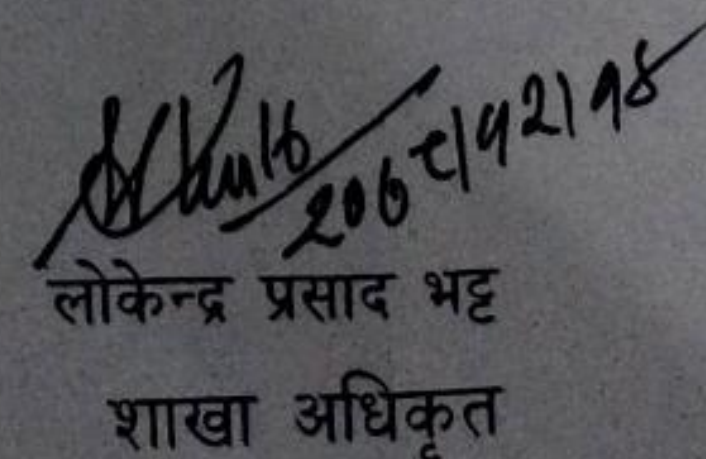 २०७९/१२/१४
लोकेन्द्र प्रसाद भट्ट
शाखा अधिकृत